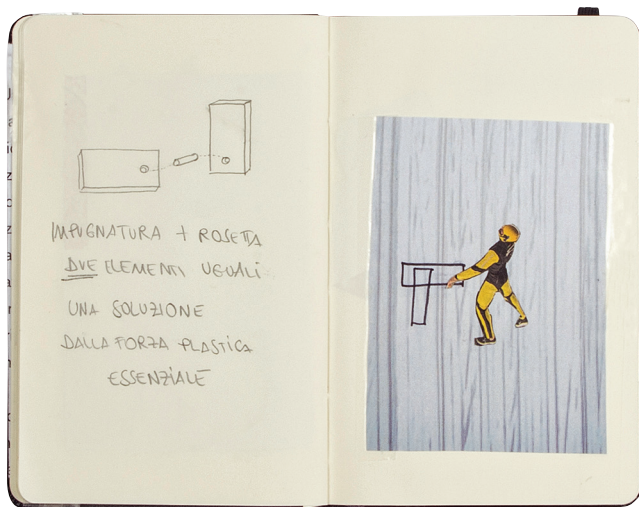 IMPUGNATURA + ROSETTA
DUE ELEMENTI UGUALI
UNA SOLUZIONE
DALLA FORZA PLASTICA
ESSENZIALE